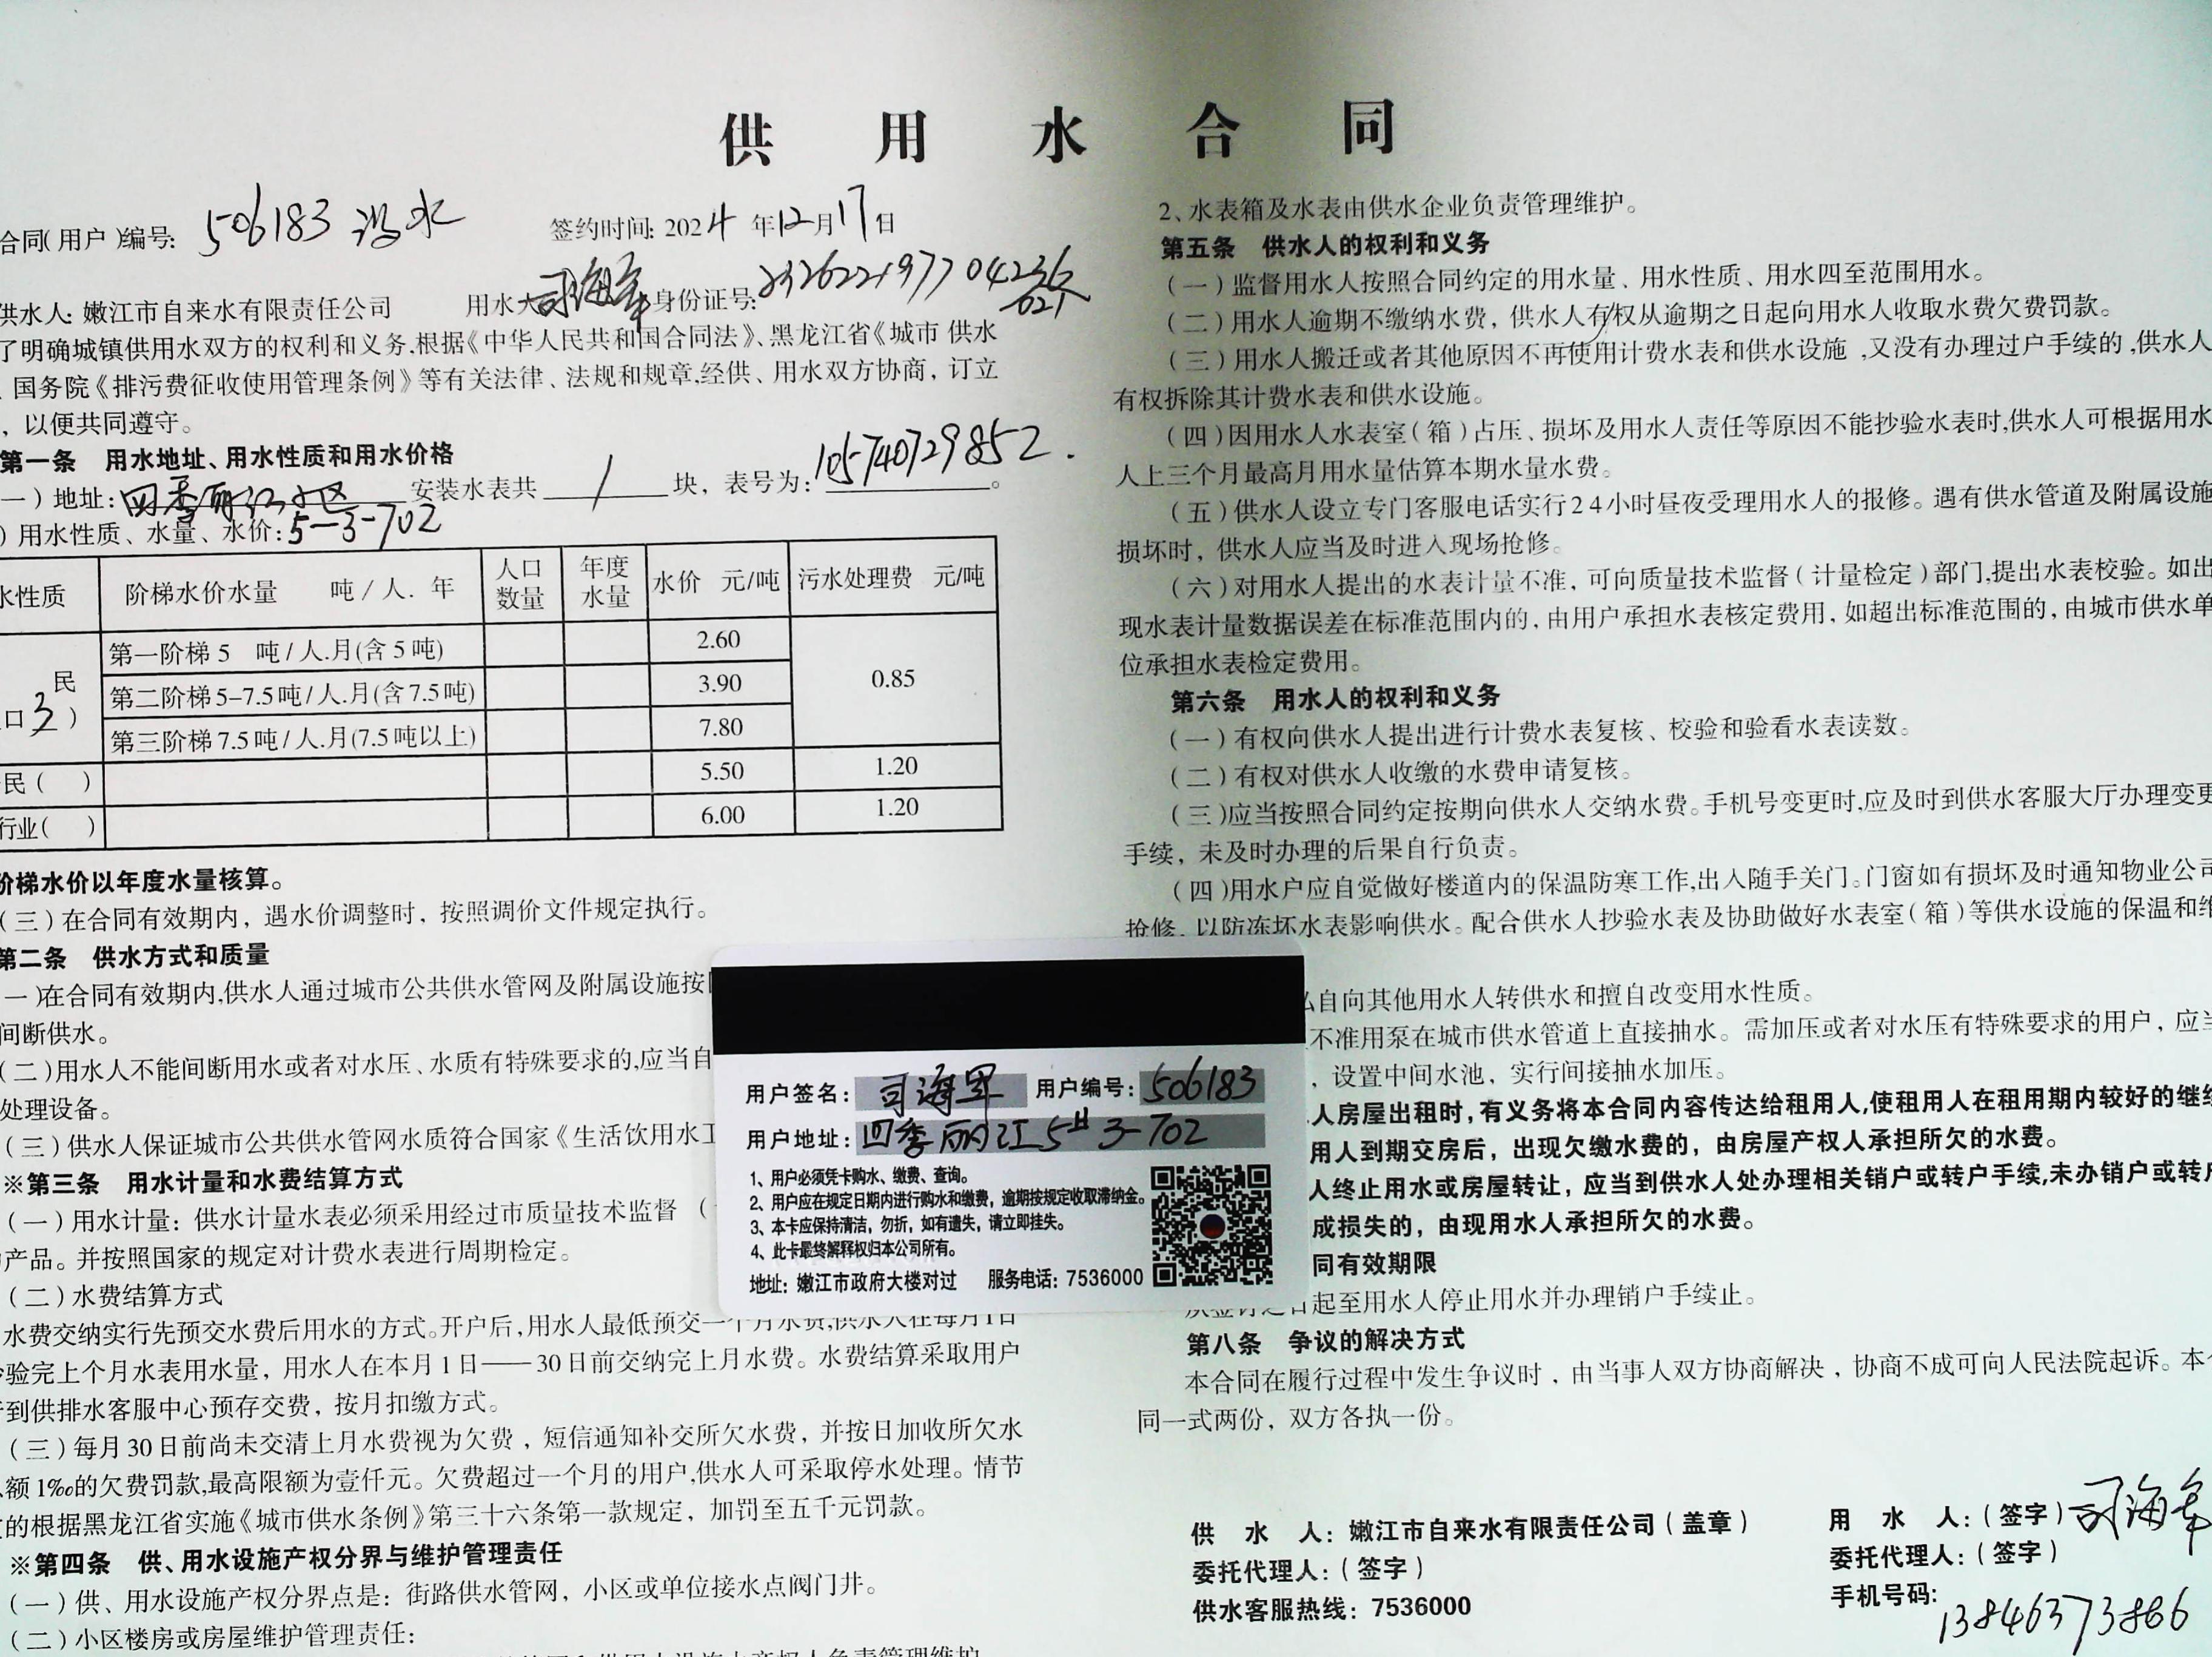 供用水合同
合同(用户)编号: 506183 冷水
签约时间: 2024年12月17日
供水人: 嫩江市自来水有限责任公司 用水 司海军 身份证号:
了明确城镇供用水双方的权利和义务,根据《中华人民共和国合同法》、黑龙江省《城市 供水
、国务院《排污费征收使用管理条例》等有关法律、法规和规章,经供、用水双方协商,订立
,以便共同遵守。
第一条 用水地址、用水性质和用水价格
一)地址: 四季丽江小区 安装水表共 1 块,表号为: 105740729852.。
)用水性质、水量、水价: 5-3-702
水性质 阶梯水价水量 吨/人.年 人口数量 年度水量 水价 元/吨 污水处理费 元/吨
民 口3) 第一阶梯5 吨/人.月(含5吨) 2.60 0.85
第二阶梯5-7.5吨/人.月(含7.5吨) 3.90
第三阶梯7.5吨/人.月(7.5吨以上) 7.80
民( ) 5.50 1.20
行业( ) 6.00 1.20
阶梯水价以年度水量核算。
(三)在合同有效期内,遇水价调整时,按照调价文件规定执行。
第二条 供水方式和质量
一)在合同有效期内,供水人通过城市公共供水管网及附属设施按
间断供水。
(二)用水人不能间断用水或者对水压、水质有特殊要求的,应当自
处理设备。
(三)供水人保证城市公共供水管网水质符合国家《生活饮用水
※第三条 用水计量和水费结算方式
(一)用水计量:供水计量水表必须采用经过市质量技术监督(
产品。并按照国家的规定对计费水表进行周期检定。
(二)水费结算方式
水费交纳实行先预交水费后用水的方式。开户后,用水人最低预交一个月水费,供水人在每月1日
验完上个月水表用水量,用水人在本月1日——30日前交纳完上月水费。水费结算采取用户
到供排水客服中心预存交费,按月扣缴方式。
(三)每月30日前尚未交清上月水费视为欠费,短信通知补交所欠水费,并按日加收所欠水
额1‰的欠费罚款,最高限额为壹仟元。欠费超过一个月的用户,供水人可采取停水处理。情节
的根据黑龙江省实施《城市供水条例》第三十六条第一款规定,加罚至五千元罚款。
※第四条 供、用水设施产权分界与维护管理责任
(一)供、用水设施产权分界点是:街路供水管网,小区或单位接水点阀门井。
(二)小区楼房或房屋维护管理责任:
2、水表箱及水表由供水企业负责管理维护。
第五条 供水人的权利和义务
(一)监督用水人按照合同约定的用水量、用水性质、用水四至范围用水。
(二)用水人逾期不缴纳水费,供水人有权从逾期之日起向用水人收取水费欠费罚款。
(三)用水人搬迁或者其他原因不再使用计费水表和供水设施,又没有办理过户手续的,供水人
有权拆除其计费水表和供水设施。
(四)因用水人水表室(箱)占压、损坏及用水人责任等原因不能抄验水表时,供水人可根据用水
人上三个月最高月用水量估算本期水量水费。
(五)供水人设立专门客服电话实行24小时昼夜受理用水人的报修。遇有供水管道及附属设施
损坏时,供水人应当及时进入现场抢修。
(六)对用水人提出的水表计量不准,可向质量技术监督(计量检定)部门,提出水表校验。如出
现水表计量数据误差在标准范围内的,由用户承担水表核定费用,如超出标准范围的,由城市供水单
位承担水表检定费用。
第六条 用水人的权利和义务
(一)有权向供水人提出进行计费水表复核、校验和验看水表读数。
(二)有权对供水人收缴的水费申请复核。
(三)应当按照合同约定按期向供水人交纳水费。手机号变更时,应及时到供水客服大厅办理变更
手续,未及时办理的后果自行负责。
(四)用水户应自觉做好楼道内的保温防寒工作,出入随手关门。门窗如有损坏及时通知物业公司
抢修,以防冻坏水表影响供水。配合供水人抄验水表及协助做好水表室(箱)等供水设施的保温和维
私自向其他用水人转供水和擅自改变用水性质。
不准用泵在城市供水管道上直接抽水。需加压或者对水压有特殊要求的用户,应当
,设置中间水池,实行间接抽水加压。
人房屋出租时,有义务将本合同内容传达给租用人,使租用人在租用期内较好的继续
用人到期交房后,出现欠缴水费的,由房屋产权人承担所欠的水费。
人终止用水或房屋转让,应当到供水人处办理相关销户或转户手续,未办销户或转户
成损失的,由现用水人承担所欠的水费。
同有效期限
从签订之日起至用水人停止用水并办理销户手续止。
第八条 争议的解决方式
本合同在履行过程中发生争议时,由当事人双方协商解决,协商不成可向人民法院起诉。本合
同一式两份,双方各执一份。
供 水 人:嫩江市自来水有限责任公司(盖章)
委托代理人:(签字)
供水客服热线:7536000
用 水 人:(签字) 司海军
委托代理人:(签字)
手机号码: 13846373866
用户签名: 司海军 用户编号: 506183
用户地址: 四季丽江5# 3-702
1、用户必须凭卡购水、缴费、查询。
2、用户应在规定日期内进行购水和缴费,逾期按规定收取滞纳金。
3、本卡应保持清洁,勿折,如有遗失,请立即挂失。
4、此卡最终解释权归本公司所有。
地址:嫩江市政府大楼对过 服务电话:7536000